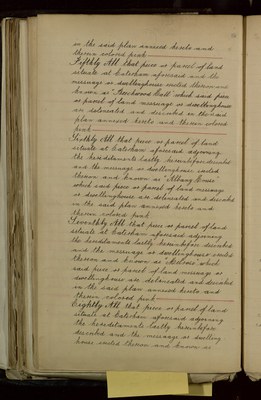 in the said plan annexed hereto and
thereon colored pink
Fifthly All that piece or parcel of land
situate at Caterham aforesaid and the
messuage or dwellinghouse erected thereon and
known as "Beechwood Hall" which said piece
or parcel of land messuage or dwellinghouse
are delineated and described in the said
plan annexed hereto and thereon colored
pink
Sixthly All that piece or parcel of land
situate at Caterham aforesaid adjoining
the hereditaments lastly hereinbefore described
and the messuage or dwellinghouse erected
thereon and known as "Albany House"
which said piece or parcel of land messuage
or dwellinghouse are delineated and described
in the said plan annexed hereto and
thereon colored pink
Seventhly All that piece or parcel of land
situate at Caterham aforesaid adjoining
the hereditaments lastly hereinbefore described
and the messuage or dwellinghouse erected
thereon and known as "Melrose" which
said piece or parcel of land messuage or
dwellinghouse are delineated and described
in the said plan annexed hereto and
thereon colored pink
Eighthly All that piece or parcel of land
situate at Caterham aforesaid adjoining
the hereditaments lastly hereinbefore
described and the messuage or dwelling
house erected thereon and known as